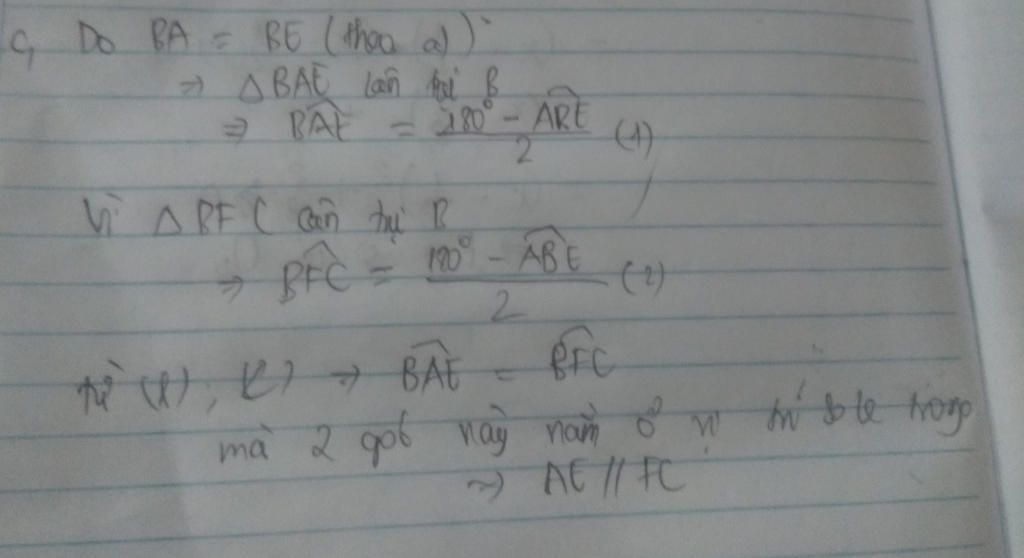 c, Do BA = BE (theo a))
=> ΔBAE cân tại B
=> BAE^ = (180° - ABE^)/2 (1)
Vì ΔBFC cân tại B
=> BFC^ = (180° - ABE^)/2 (2)
từ (1), (2) => BAE^ = BFC^
mà 2 góc này nằm ở vị trí so le trong
=> AE // FC